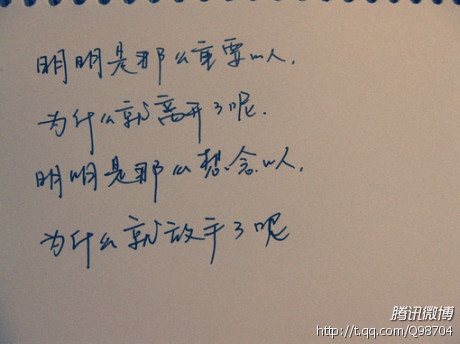 明明是那么重要的人,
为什么就离开了呢.
明明是那么想念的人,
为什么就放手了呢
腾讯微博
http://t.qq.com/Q98704